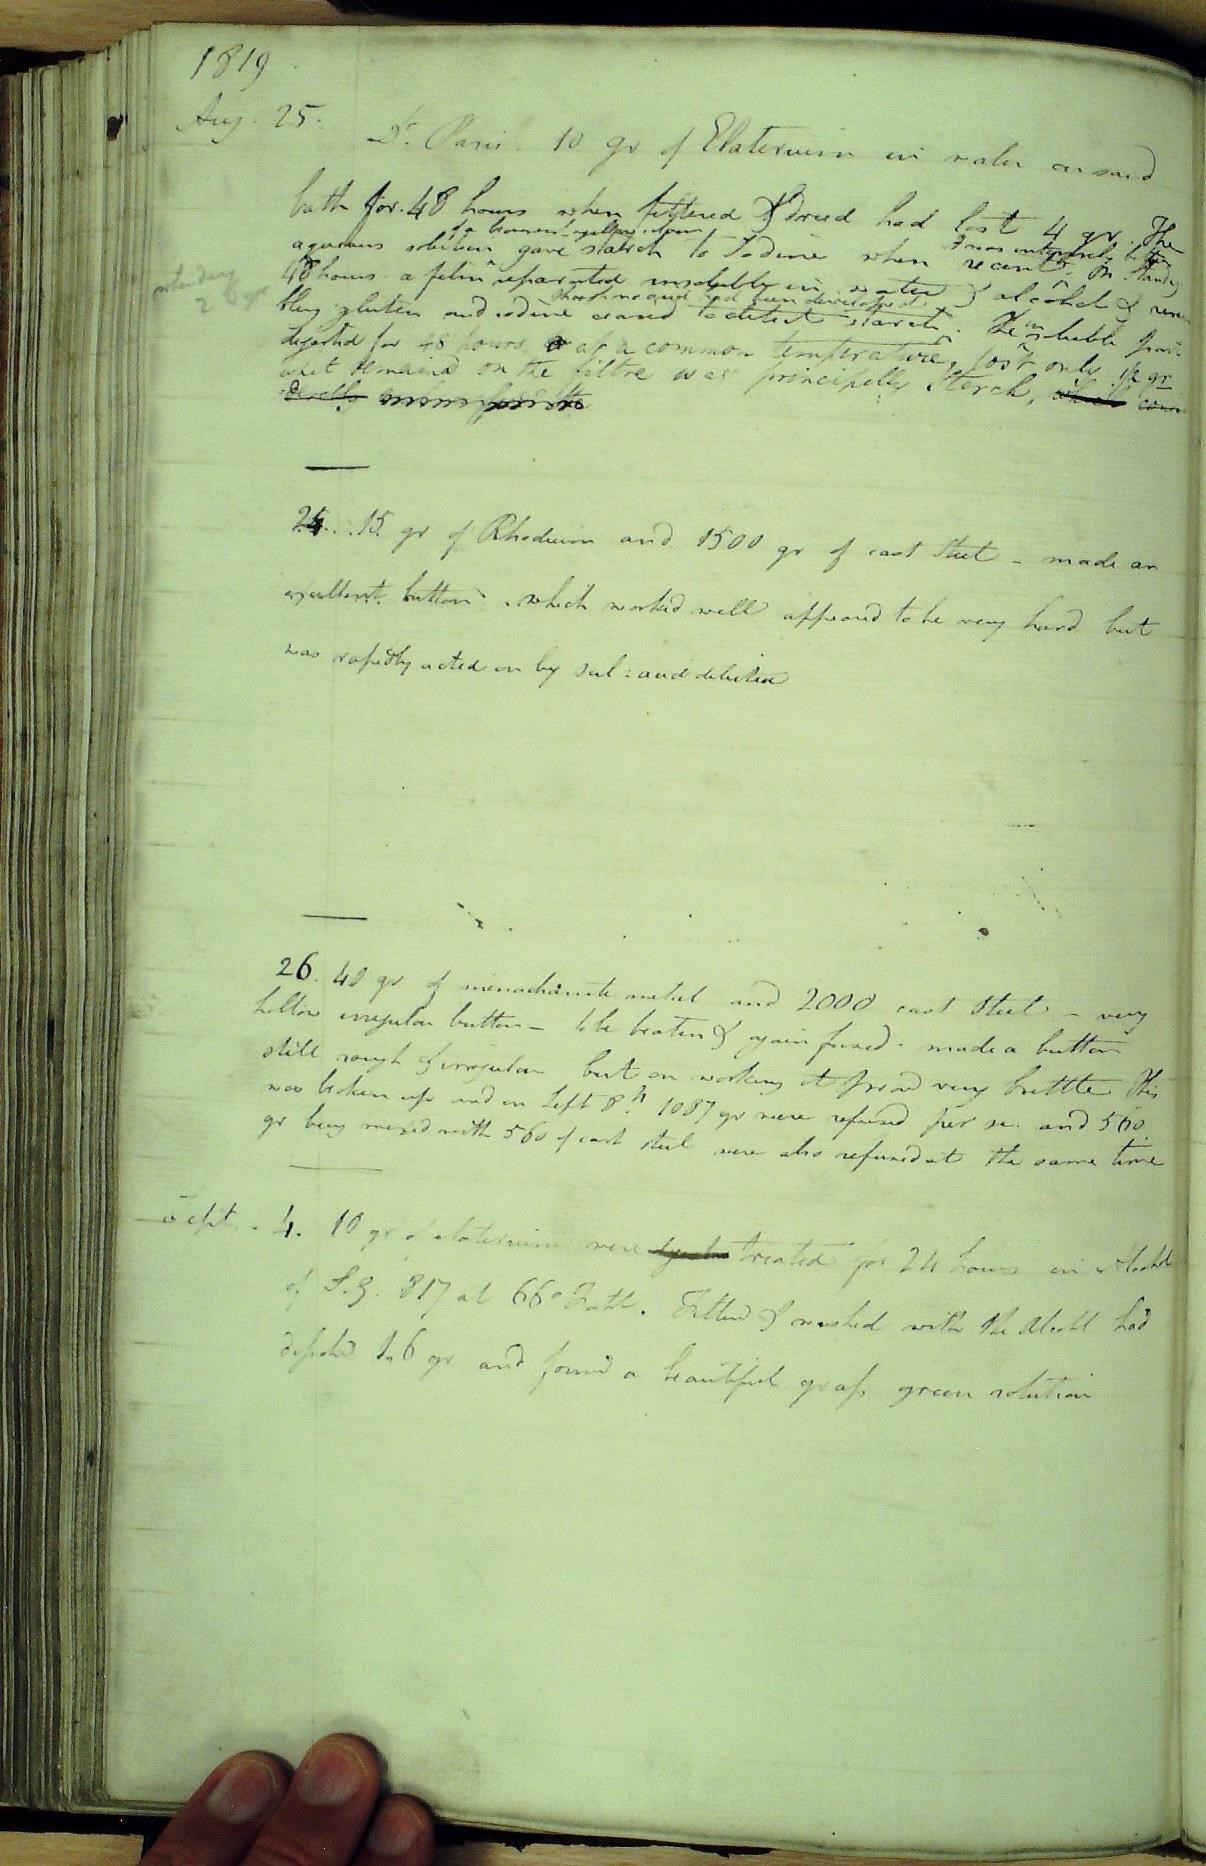 1819
Aug. 25.
Dr. Paris. 10 gr of Elaterium in water on sand
bath for 48 hours when filtered & dried had lost 4 gr. The
of a brownish yellow colour
it was intensely bitter
aqueous solution gave starch to Iodine when recent. On standing
48 hours a film separated insoluble in water & alcohol &
when dry
2 6 gr
though no acid had been developed
bling gluten and iodine ceased to detect starch. The insoluble
digested for 48 hours at a common temperature, lost only 1/2 gr
what remained on the filtre was principally starch, which

24. 15 gr of Rhodium and 1500 gr of cast steel - made an
excellent button. which worked well appeared to be very hard but
was rapidly acted on by sul: acid diluted
26. 40 gr of menachanite metal and 2000 cast steel - very
hollow irregular button - to be beaten & again fused - made a button
still rough & irregular but on working it proved very brittle This
was broken up and on Sept 8th 1087 gr were refused per se. and 560
gr being mixed with 560 of cast steel were also refused at the same time
Sept. 4. 10 gr of elaterium were treated for 24 hours in alcohol
of S.G. 817 at 66° Faht. Filtered & washed with the alcohol had
deposited 1.6 gr and formed a beautiful grass green solution